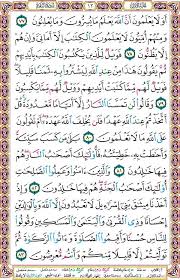 أَوَلَا يَعْلَمُونَ أَنَّ ٱللَّهَ يَعْلَمُ مَا يُسِرُّونَ وَمَا يُعْلِنُونَ
٧٧ وَمِنْهُمْ أُمِّيُّونَ لَا يَعْلَمُونَ ٱلْكِتَٰبَ إِلَّآ أَمَانِيَّ وَإِنْ هُمْ
إِلَّا يَظُنُّونَ ٧٨ فَوَيْلٌ لِّلَّذِينَ يَكْتُبُونَ ٱلْكِتَٰبَ بِأَيْدِيهِمْ
ثُمَّ يَقُولُونَ هَٰذَا مِنْ عِندِ ٱللَّهِ لِيَشْتَرُوا۟ بِهِۦ ثَمَنًا قَلِيلًا
فَوَيْلٌ لَّهُم مِّمَّا كَتَبَتْ أَيْدِيهِمْ وَوَيْلٌ لَّهُم مِّمَّا يَكْسِبُونَ
٧٩ وَقَالُوا۟ لَن تَمَسَّنَا ٱلنَّارُ إِلَّآ أَيَّامًا مَّعْدُودَةً قُلْ
أَتَّخَذْتُمْ عِندَ ٱللَّهِ عَهْدًا فَلَن يُخْلِفَ ٱللَّهُ عَهْدَهُۥٓ أَمْ
تَقُولُونَ عَلَى ٱللَّهِ مَا لَا تَعْلَمُونَ ٨٠ بَلَىٰ مَن كَسَبَ سَيِّئَةً
وَأَحَٰطَتْ بِهِۦ خَطِيٓـَٔتُهُۥ فَأُو۟لَٰٓئِكَ أَصْحَٰبُ ٱلنَّارِ هُمْ
فِيهَا خَٰلِدُونَ ٨١ وَٱلَّذِينَ ءَامَنُوا۟ وَعَمِلُوا۟ ٱلصَّٰلِحَٰتِ
أُو۟لَٰٓئِكَ أَصْحَٰبُ ٱلْجَنَّةِ هُمْ فِيهَا خَٰلِدُونَ ٨٢ وَإِذْ أَخَذْنَا
مِيثَٰقَ بَنِىٓ إِسْرَٰٓءِيلَ لَا تَعْبُدُونَ إِلَّا ٱللَّهَ وَبِٱلْوَٰلِدَيْنِ
إِحْسَانًا وَذِى ٱلْقُرْبَىٰ وَٱلْيَتَٰمَىٰ وَٱلْمَسَٰكِينِ وَقُولُوا۟
لِلنَّاسِ حُسْنًا وَأَقِيمُوا۟ ٱلصَّلَوٰةَ وَءَاتُوا۟ ٱلزَّكَوٰةَ ثُمَّ
تَوَلَّيْتُمْ إِلَّا قَلِيلًا مِّنكُمْ وَأَنتُم مُّعْرِضُونَ ٨٣